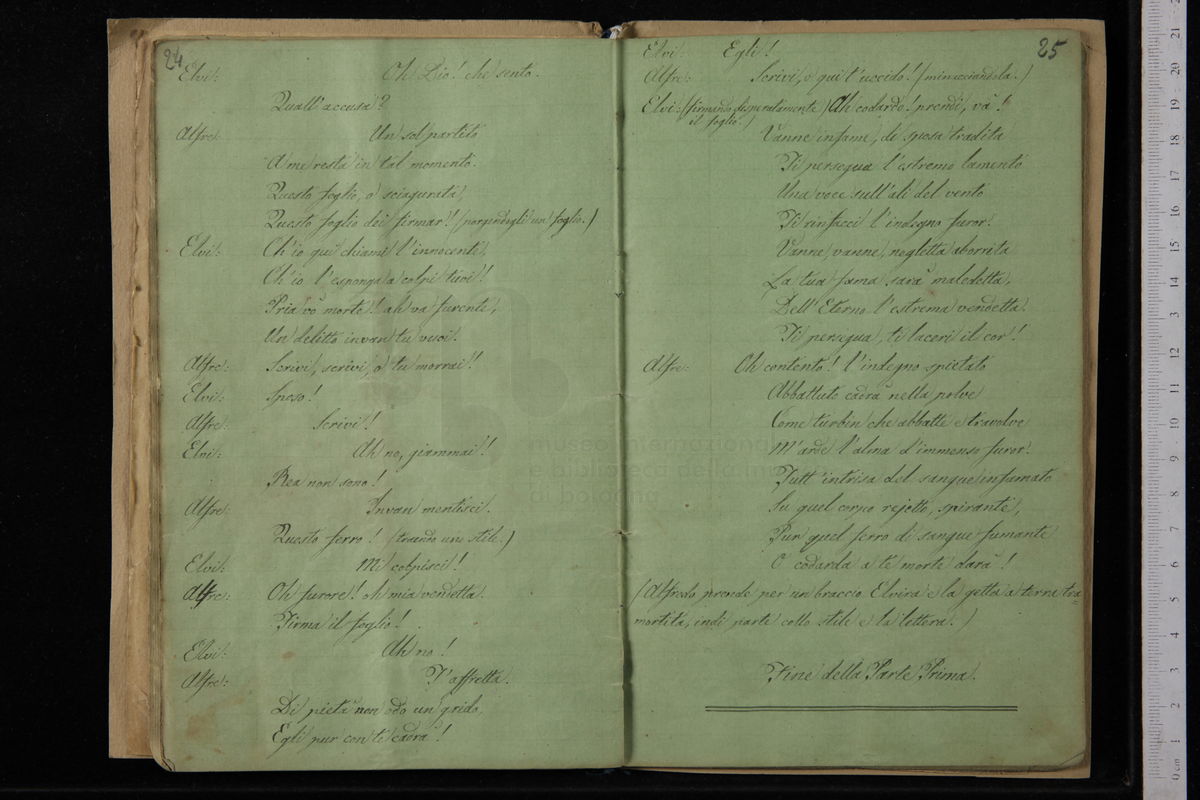 24
Elvi: Oh Dio! che sento.
Quall'accusa?
Alfre: Un sol partito
A me resta in tal momento.
Questo foglio, o sciagurata,
Questo foglio dei firmar! (porgendogli un foglio.)
Elvi: Ch'io qui chiami l'innocente,
Ch'io l'esponga a colpi tuoi!
Pria vo' morte! ah va furente,
Un delitto invan tu vuoi.
Alfre: Scrivi, scrivi, o tu morrai!
Elvi: Sposo!
Alfre: Scrivi!
Elvi: Ah no, giammai!
Rea non sono!
Alfre: Invan mentisci.
Questo ferro! (traendo uno stile.)
Elvi: Mi colpisci!
Alfre: Oh furore! oh mia vendetta.
Firma il foglio!
Elvi: Ah no!
Alfre: T'affretta.
Di pietà non odo un grido,
Egli pur con te cadrà!
25
Elvi: Egli!
Alfre: Scrivi, o qui t'uccido! (minacciandola.)
Elvi: (firmando disperatamente il foglio.) Ah codardo! prendi, va!
Vanne infame, di sposa tradita
Ti persegua l'estremo lamento
Una voce sull'ali del vento
Ti rinfacci l'indegno furor!
Vanne, vanne, negletta aborrita
La tua fama sarà maledetta,
Dell'Eterno l'estrema vendetta
Ti persegua, ti laceri il cor!
Alfre: Oh contento! l'indegno spietato
Abbattuto cadrà nella polve
Come turbin che abbatte e travolve
M'arde l'alma d'immenso furor!
Tutt'intrisa del sangue infamato
Su quel corpo rejetto, spirante,
Pur quel ferro di sangue fumante
O codarda a te morte darà!
(Alfredo prende per un braccio Elvira e la getta a terra tra=
mortita, indi parte collo stile e la lettera.)
Fine della Parte Prima.
museo internazionale
e biblioteca della musica
di bologna